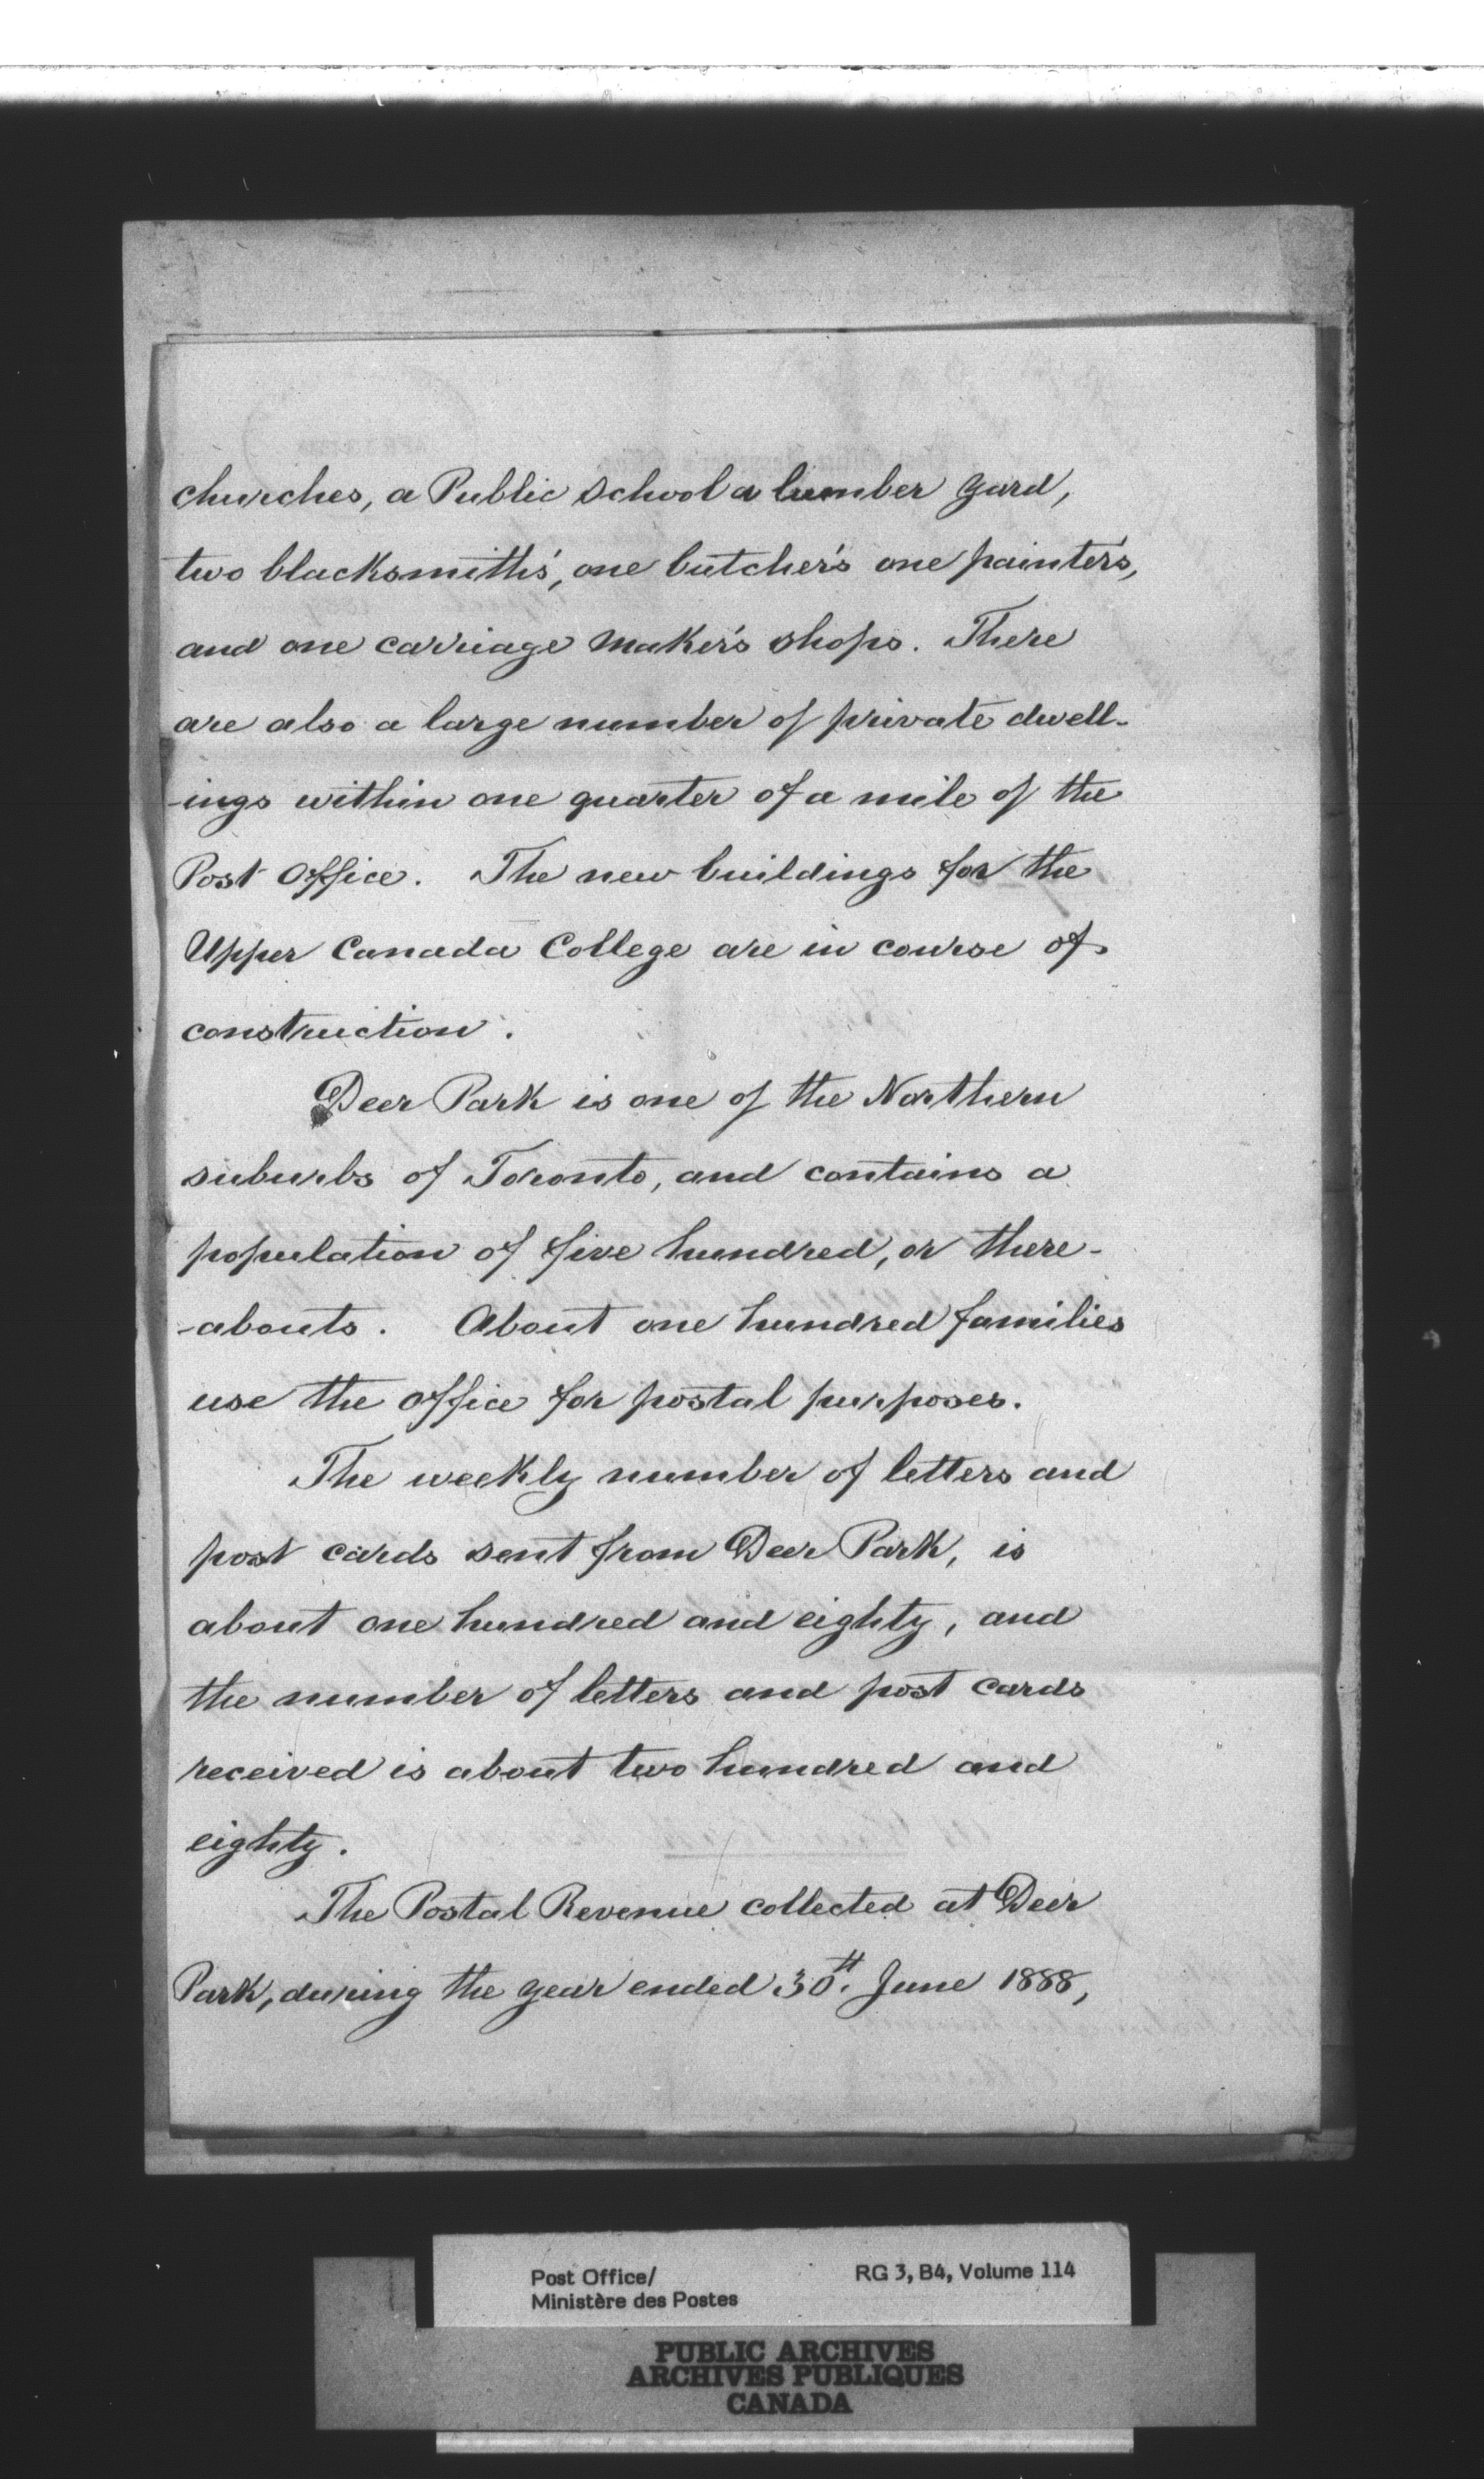 churches, a Public School a lumber yard,
two blacksmiths', one butcher's one painter's,
and one carriage maker's shops. There
are also a large number of private dwell-
-ings within one quarter of a mile of the
Post Office. The new buildings for the
Upper Canada College are in course of
construction.
Deer Park is one of the Northern
suburbs of Toronto, and contains a
population of five hundred, or there-
-abouts. About one hundred families
use the office for postal purposes.
The weekly number of letters and
post cards sent from Deer Park, is
about one hundred and eighty, and
the number of letters and post cards
received is about two hundred and
eighty.
The Postal Revenue collected at Deer
Park, during the year ended 30th. June 1888,
Post Office/ RG 3, B4, Volume 114
Ministère des Postes
PUBLIC ARCHIVES
ARCHIVES PUBLIQUES
CANADA